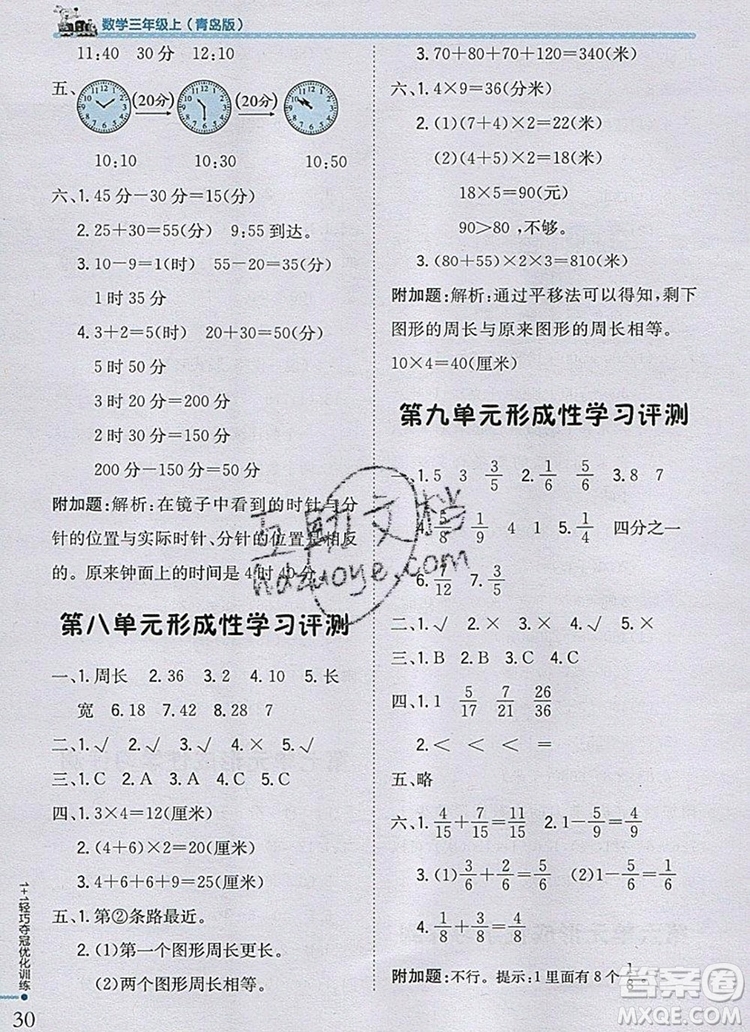 数学三年级上(青岛版)
11:40 30分 12:10
五、
(20分) (20分)
10:10 10:30 10:50
六、1.45分-30分=15(分)
2.25+30=55(分) 9:55到达。
3.10-9=1(时) 55-20=35(分)
1时35分
4.3+2=5(时) 20+30=50(分)
5时50分
3时20分=200分
2时30分=150分
200分-150分=50分
附加题:解析:在镜子中看到的时针与分
针的位置与实际时针、分针的位置是相反
的。原来钟面上的时间是4时40分。
第八单元形成性学习评测
一、1.周长 2.36 3.2 4.10 5.长
宽 6.18 7.42 8.28 7
二、1.√ 2.√ 3.× 4.√ 5.×
三、1.C 2.A 3.A 4.C 5.C
四、1.3×4=12(厘米)
2.(4+6)×2=20(厘米)
3.4+6+6=16(厘米)
五、1.第②条路最近。
2.(1)第一个图形周长更长。
(2)两个图形周长相等。
1+1轻巧夺冠优化训练
30
3.70+80+120+120=390(米)
六、1.4×9=36(分米)
2.(1)(7+4)×2=22(米)
(2)(5+4)×2=18(米)
18×5=90(元)
90>80,不够。
3.(80+55)×2×3=810(米)
附加题:解析:通过平移法可以得知,剩下
图形的周长与原来图形的周长相等。
10×4=40(厘米)
第九单元形成性学习评测
一、1.5 3 3/5 2.1/6 5/6 3.8 7
/8 1/9 4 1 5.1/4 四分之一
6.7/12 7.3/5
二、1.× 2.× 3.× 4.√ 5.×
四、1.1 5/17 7/16 26/36
2.< < = <
五、略
六、1.4/15+7/15=11/15 2.1-5/9=4/9
3.(1)3/6+2/6=5/6 (2)1-5/6=1/6
4.1/9+3/9=4/9
附加题:不行。提示:1里面有8个1/8。
互助文档
hzuoye.com
答案圈
MXQE.COM